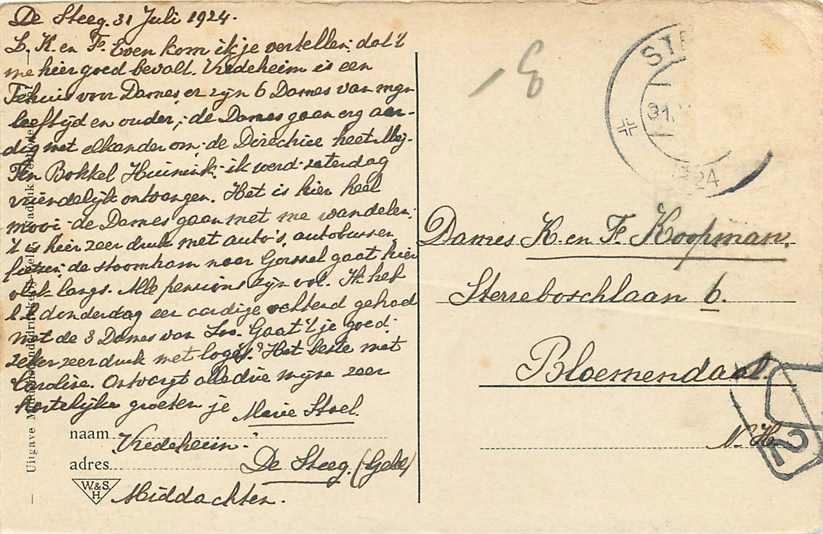 De Steeg. 31 Juli 1924.
L. K. en F. Even kom ik je vertellen, dat 't
me hier goed bevalt. Vredeheim is een
Tehuis voor Dames, er zijn 6 Dames van mijn
leeftijd en ouder, de Dames gaan erg aar-
dig met elkander om, de Directrice heet Mej.
Ten Bokkel Huinink, ik werd zaterdag
vriendelijk ontvangen. Het is hier heel
mooi, de Dames gaan met me wandelen,
't is hier zeer druk met auto's, autobussen
fietsen, de stoomtram naar Gorssel gaat hier
ook langs. Alle pensions zijn vol. Ik heb
donderdag een aardige ochtend gehad
met de 3 Dames van Loo. Gaat 't je goed,
zeker zeer druk met logés? Het beste met
Caroline. Ontvangt alle drie mijne zeer
hartelijke groeten je Marie Stoel.
naam Vredeheim.
adres De Steeg. (Geld)
Middachten.
W&S
H
Uitgave
STE
31.
1924
Dames K. en F. Koopman,
Sterreboschlaan 6.
Bloemendaal.
N.H.
2